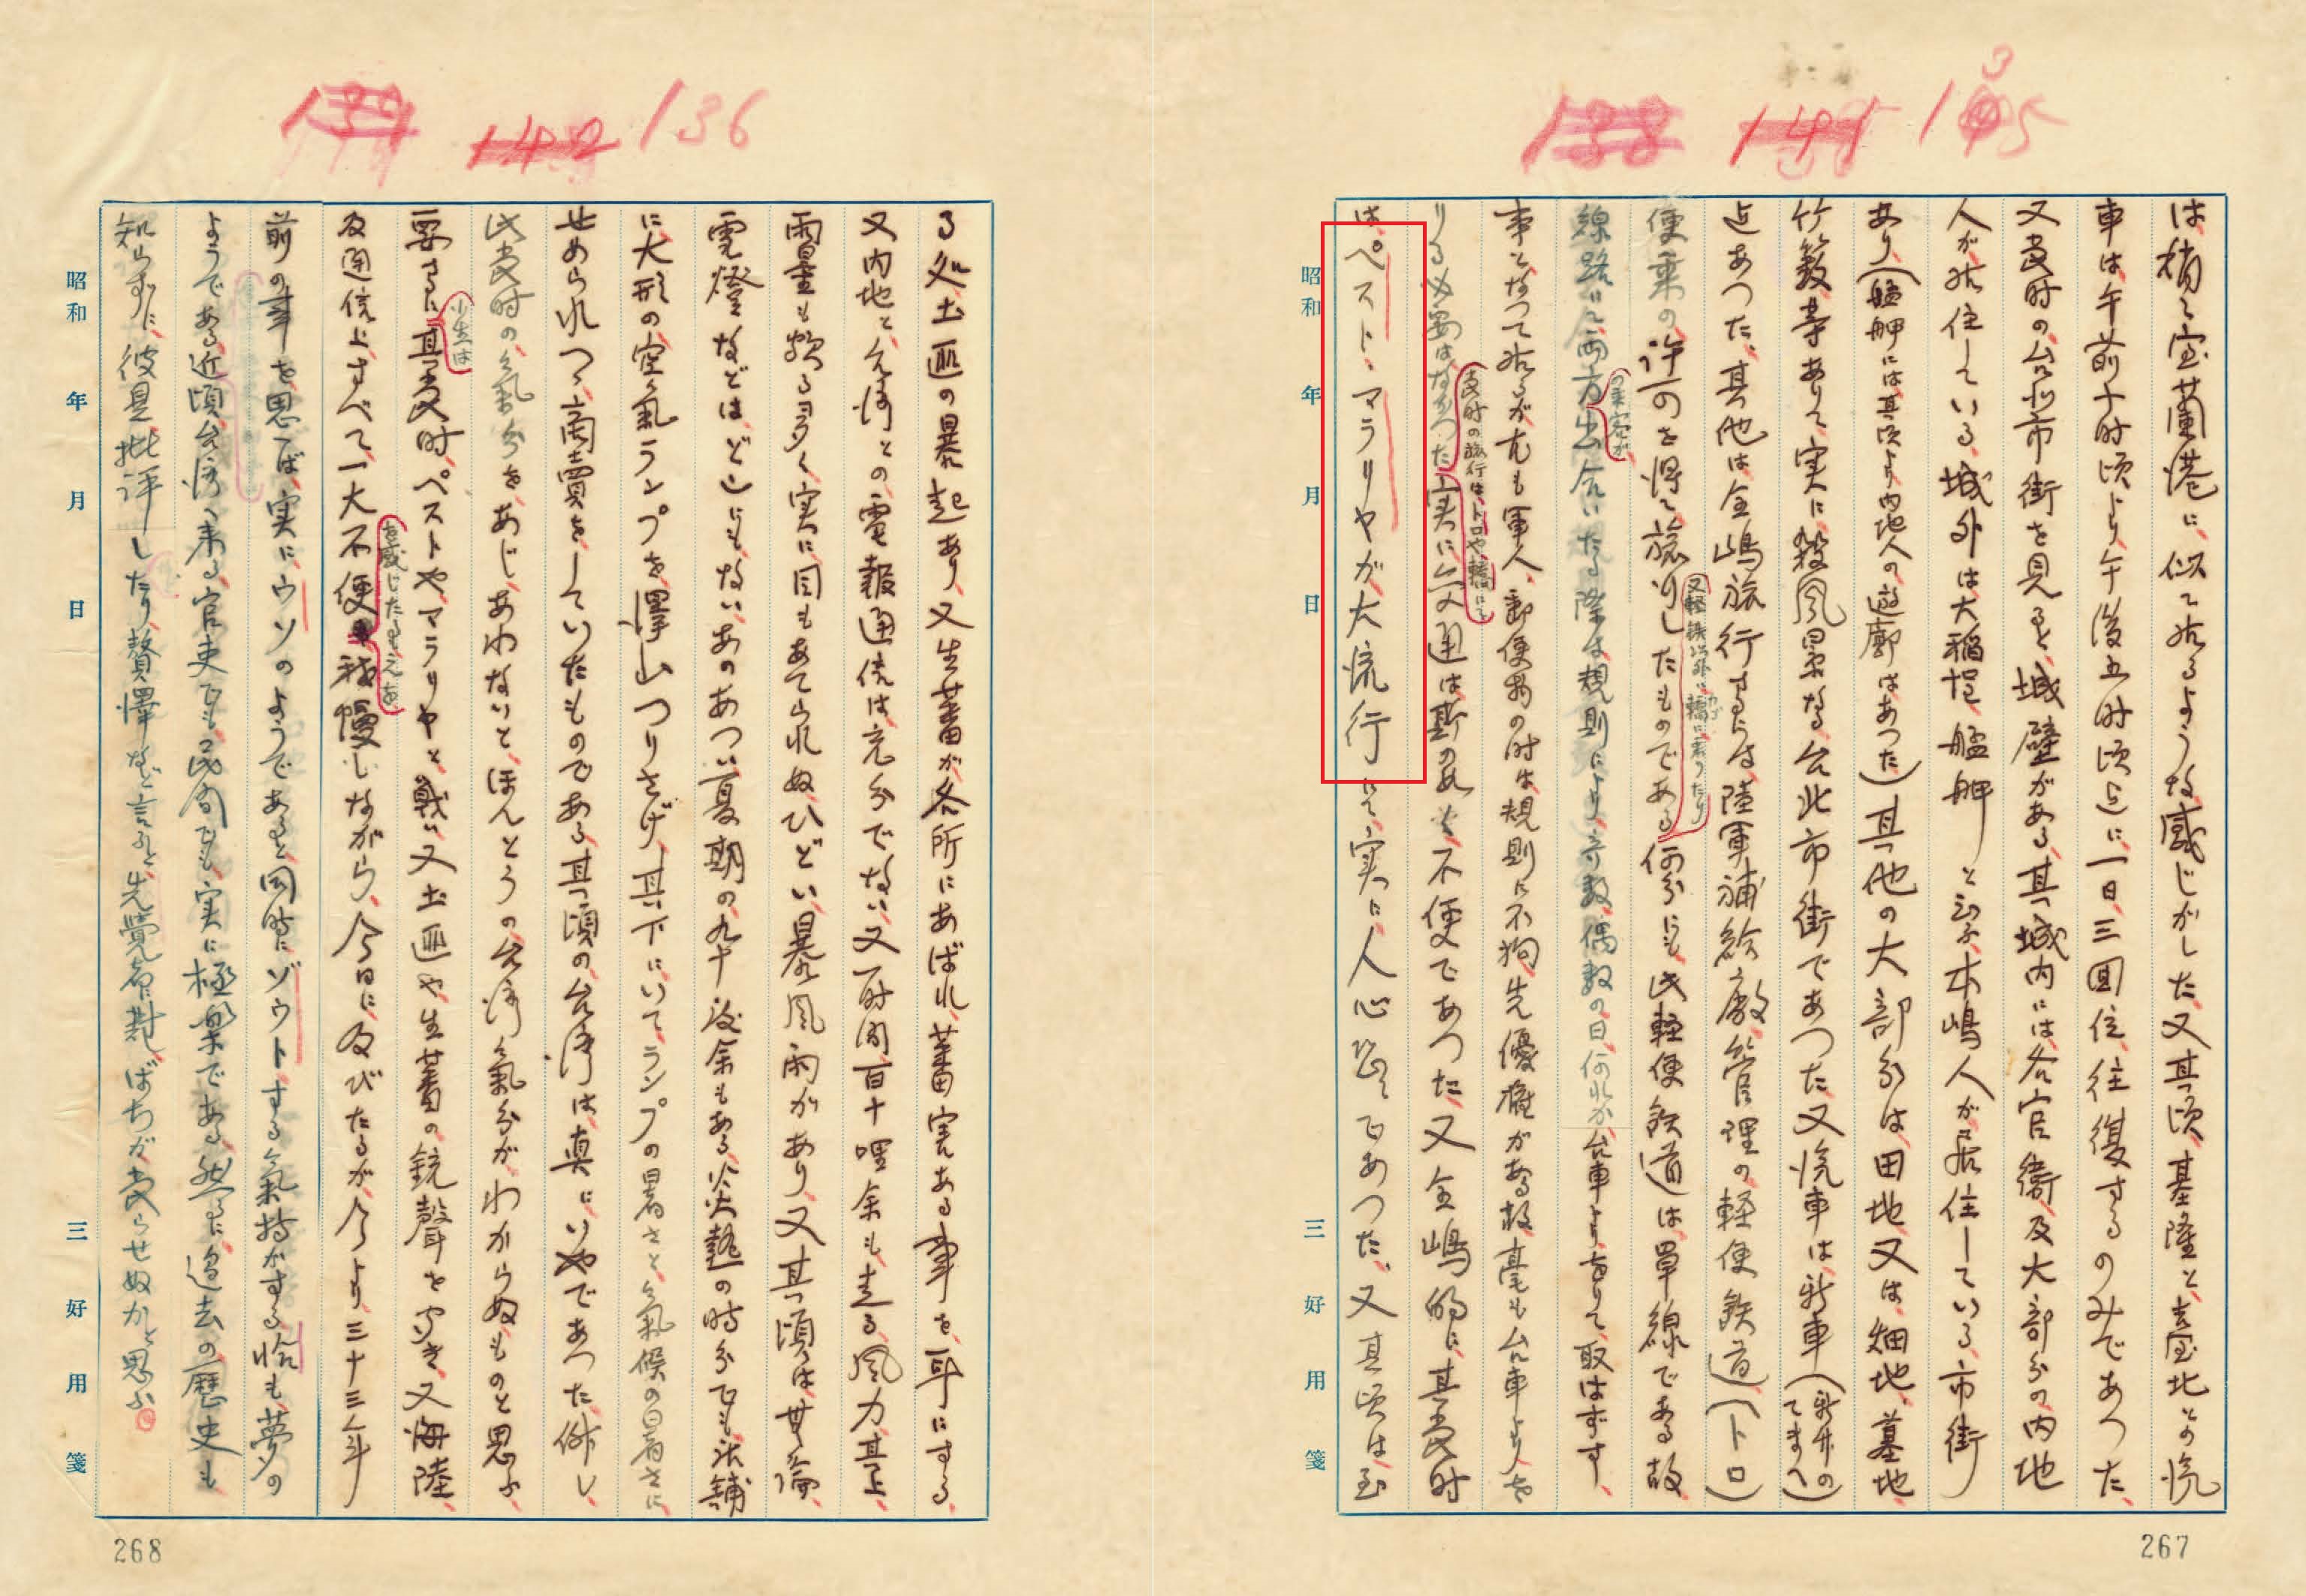 135
は稍々宜蘭港に似て居るような感じがした、又其頃基隆と臺北との汽
車は午前十時頃より午後五時頃迄に一日三回位往復するのみであつた、
又当時の台北市街を見ると、城壁がある其城内には各官衙及大部分の内地
人が居住している、城外は大稲埕、艋舺と云ふ本嶋人が居住している市街
あり、(艋舺には其頃より内地人の遊廓はあつた)其他の大部分は、田地又は、畑地、墓地、
竹藪等ありて実に殺風景なる台北市街であつた又汽車は列車(
迄あつた、其他は全嶋旅行するには陸軍補給廠管理の軽便鉄道(トロ)
便乗の許可を得て旅行したものである何分にも此軽便鉄道は単線である故
又軽鉄以外に轎に乗つたり
線路にて両方出合いたる際は規則により奇数偶数の日何れか台車より
の乗客が
取はずす、
事となつて居るが尤も軍人、郵便物の時は規則に不拘先優権がある故毫も台車より人を
りる必要はなかつた実に交通は斯の如く不便であつた又全嶋的に其当時
当時の旅行は、トロや轎にて
は、ペスト、マラリヤが大流行にて実に人心恐々であつた、又其頃は至
昭和 年 月 日
三好用箋
267
136
る処土匪の暴起あり、又生蕃が各所にあばれ蕃害ある事を耳にする、
又内地と台湾との電報通信は充分でない又一時間百十哩余も走る風力其上、
雷量も頗る多く実に目もあてられぬひどい暴風雨があり、又其頃は無論、
電燈などはどこにもないあのあつい夏期の九十後余もある炎熱の時分でも店舗
に大形の空気ランプを澤山つりさげ其下にいてランプの暑さと気候の暑さに
せめられつゝ商売をしていたものである其頃の台湾は真にいやであつた併し、
此当時の気分をあじあわないと、ほんとうの台湾気分がわからぬものと思ふ
要するに其当時、ペストやマラリヤと戦い又土匪や生蕃の銃聲を聞き、又海陸、
小生は
及通信上すべて一大不便 我慢しながら、今日に及びたるが今より三十三年
を感じたるも
前の事を思へば、実にウソのようであると同時にゾウトする気持がする恰も夢の
ようである近頃台湾へ来る官吏でも民間でも、実に極楽である然るに過去の歴史も
知らずに、彼是批評したり贅澤など言ふと先覺者に対しばちが当らせぬかと思ふ
昭和 年 月 日
三好用箋
268